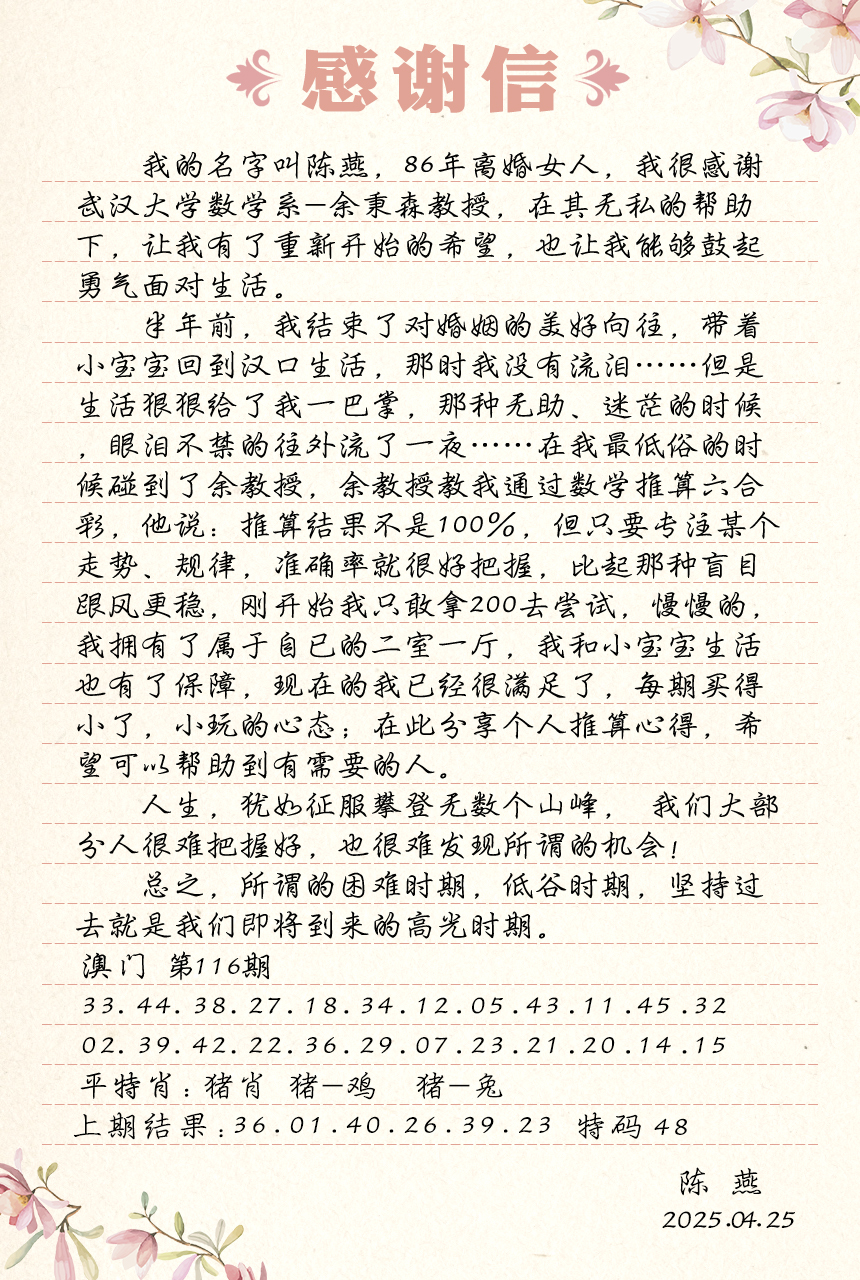 感谢信
我的名字叫陈燕，86年离婚女人，我很感谢
武汉大学数学系—余秉森教授，在其无私的帮助
下，让我有了重新开始的希望，也让我能够鼓起
勇气面对生活。
半年前，我结束了对婚姻的美好向往，带着
小宝宝回到汉口生活，那时我没有流泪……但是
生活狠狠给了我一巴掌，那种无助、迷茫的时候
，眼泪不禁的往外流了一夜……在我最低俗的时
候碰到了余教授，余教授教我通过数学推算六合
彩，他说：推算结果不是100%，但只要专注某个
走势、规律，准确率就很好把握，比起那种盲目
跟风更稳，刚开始我只敢拿200去尝试，慢慢的，
我拥有了属于自已的二室一厅，我和小宝宝生活
也有了保障，现在的我已经很满足了，每期买得
小了，小玩的心态；在此分享个人推算心得，希
望可以帮助到有需要的人。
人生，犹如征服攀登无数个山峰， 我们大部
分人很难把握好，也很难发现所谓的机会！
总之，所谓的困难时期，低谷时期，坚持过
去就是我们即将到来的高光时期。
澳门 第116期
33.44.38.27.18.34.12.05.43.11.45.32
02.39.42.22.36.29.07.23.21.20.14.15
平特肖：猪肖 猪—鸡 猪—兔
上期结果：36.01.40.26.39.23 特码 48
陈 燕
2025.04.25